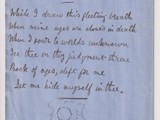 While I draw this fleeting breath
When mine eyes are closed in death
When I soar to worlds unknown
See thee on thy judgment throne
Rock of ages, cleft for me
Let me hide myself in thee.